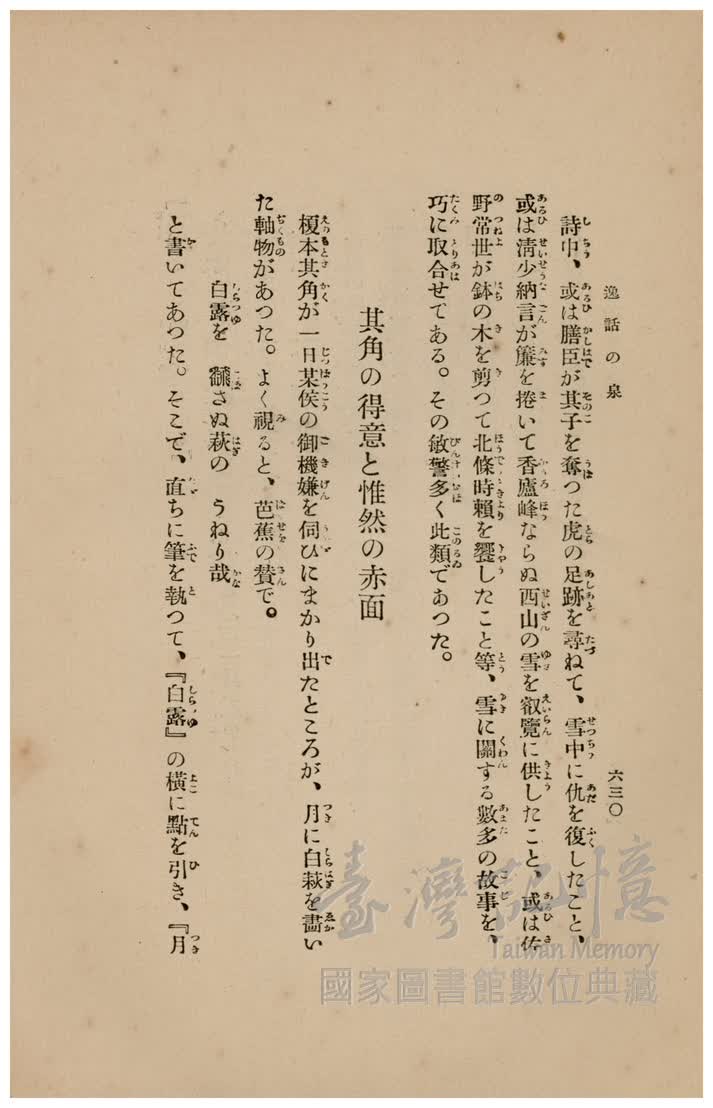 逸話の泉
六三〇
詩中、或は膳臣が其子を奪つた虎の足跡を尋ねて、雪中に仇を復したこと、
或は淸少納言が簾を捲いて香廬峰ならぬ西山の雪を叡覽に供したこと、或は佐
野常世が鉢の木を剪つて北條時賴を饗したこと等、雪に關する數多の故事を、
巧に取合せてある。その敏警多く此類であつた。
其角の得意と惟然の赤面
榎本其角が一日某侯の御機嫌を伺ひにまかり出たところが、月に白萩を畵い
た軸物があつた。よく視ると、芭蕉の賛で。
白露を さぬ萩の うねり哉
と書いてあつた。そこで、直ちに筆を執つて、『白露』の橫に點を引き、『月
臺灣記憶
Taiwan Memory
國家圖書館數位典藏